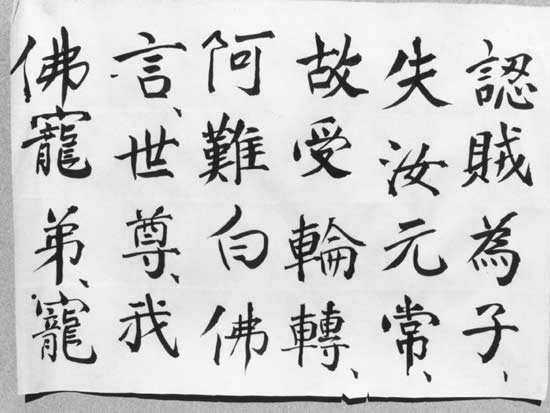 認賊為子、
失汝元常、
故受輪轉、
阿難白佛
言、世尊、我
佛寵弟、寵